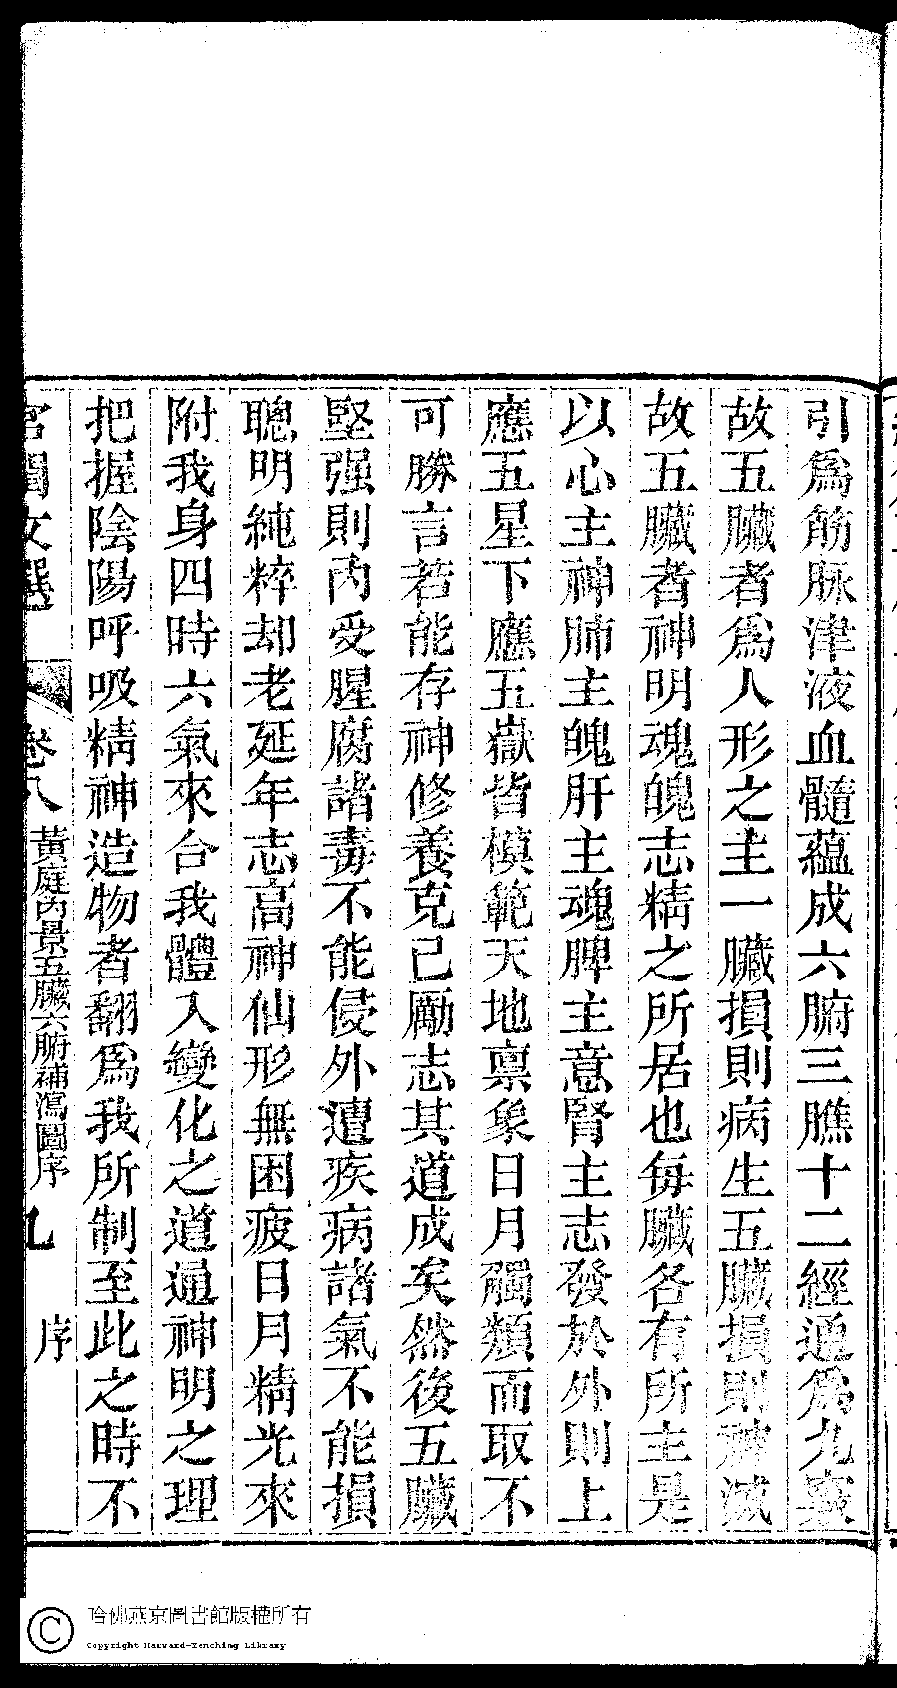 引爲筋脉津液血髓蘊成六腑三膲十二經通爲九竅
故五臟者爲人形之主一臟損則病生五臟損則神滅
故五臟者神明魂魄志精之所居也每臟各有所主是
以心主神肺主魄肝主魂脾主意腎主志發於外則上
應五星下應五嶽皆模範天地禀象日月觸類而取不
可勝言若能存神修養克己勵志其道成矣然後五臟
堅强則內受腥腐諸毒不能侵外遭疾病諸氣不能損
聰明純粹却老延年志高神仙形無困疲日月精光來
附我身四時六氣來合我體入變化之道通神明之理
把握陰陽呼吸精神造物者翻爲我所制至此之時不
宮閨文選 卷八 黃庭內景五臟六腑補瀉圖序 九 序
哈佛燕京圖書館版權所有
Copyright Harvard-Yenching Library